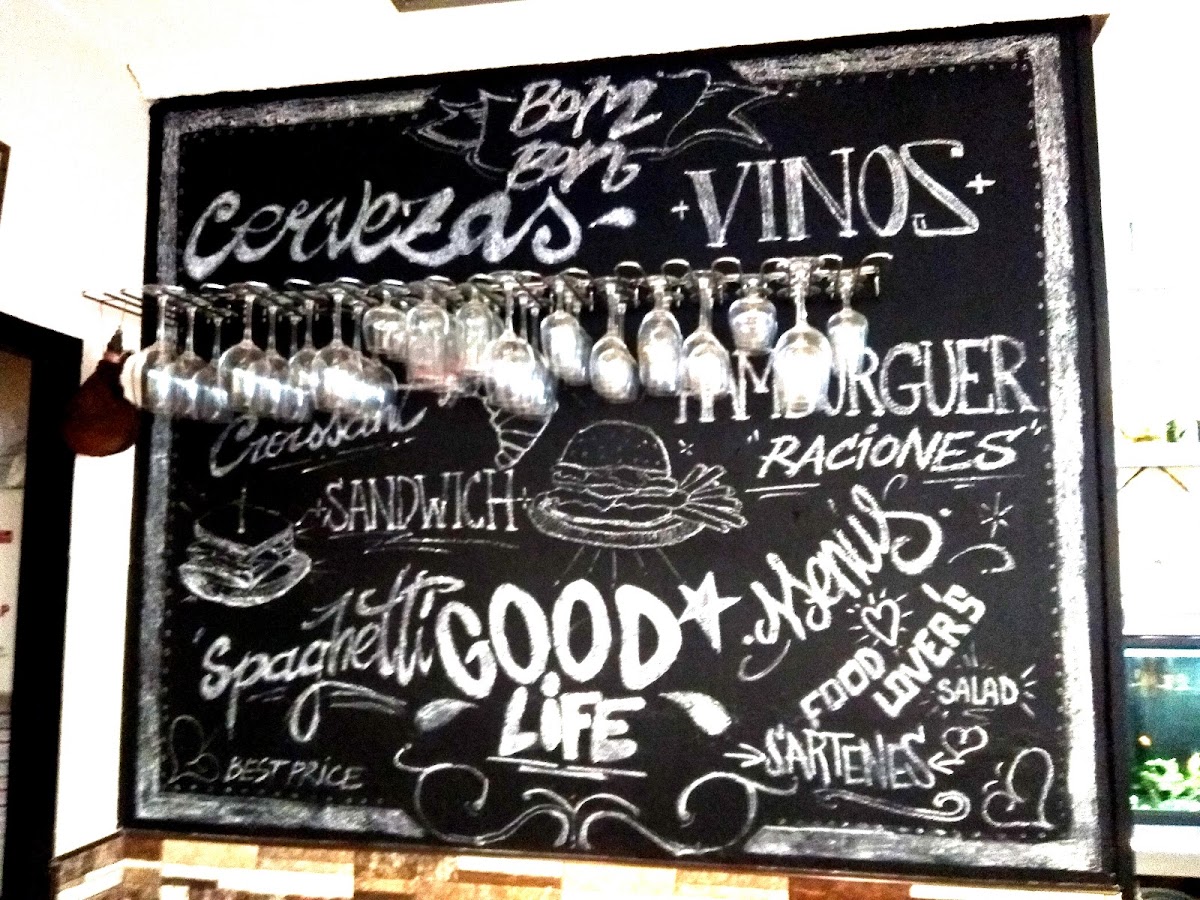 BOM
BOM
Cervezas
VINOS
HAMBURGUER
Croissant
"RACIONES"
SANDWICH
Menus
Spaghetti
GOOD
LIFE
FOOD
LOVER'S
SALAD
SARTENES
BEST PRICE